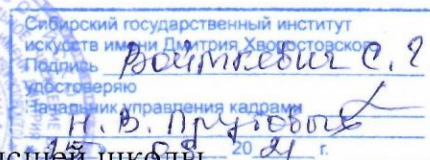 Сибирский государственный институт
искусств имени Дмитрия Хворостовского
Подпись Войткевич С. Г
удостоверяю
Начальник управления кадрами
Н. В.
20 21 г.
высшей школы